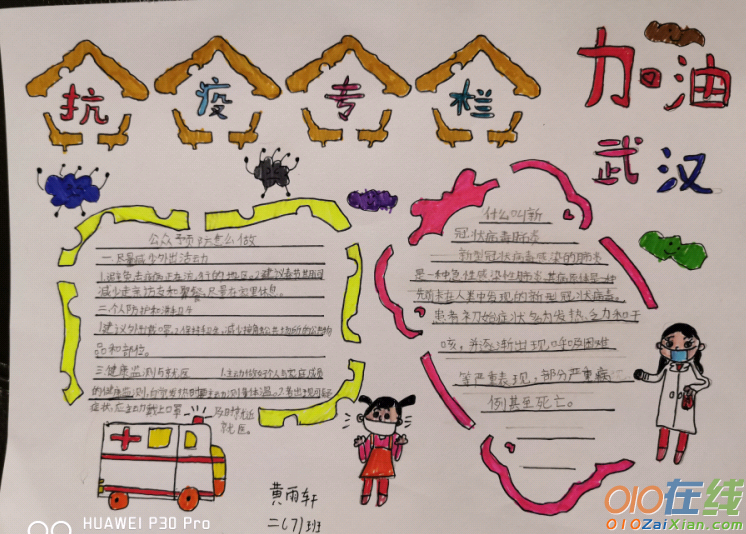 抗疫专栏
加油
武汉
公众预防怎么做
一.尽量减少外出活动
1.避免去疾病正在流行的地区。2.建议春节期间
减少走亲访友和聚餐,尽量在家里休息。
二.个人防护和
1.建议外出戴口罩。2.保持和手,减少接触公共场所的公用物
品和部位。
三.健康监测与就医 1.主动做好个人与家庭成员
的健康监测,自觉发热时要主动测量体温。2.若出现可疑
症状,应主动戴上口罩
及时就近
就医。
什么叫新
冠状病毒肺炎
新型冠状病毒感染的肺炎
是一种急性感染性肺炎,其病原体是一种
先前未在人类中发现的新型冠状病毒。
患者初始症状多为发热、乏力和干
咳,并逐渐出现呼吸困难
等严重表现,部分严重病
例甚至死亡。
黄雨轩
二(7)班
HUAWEI P30 Pro
010在线
010ZaiXian.com